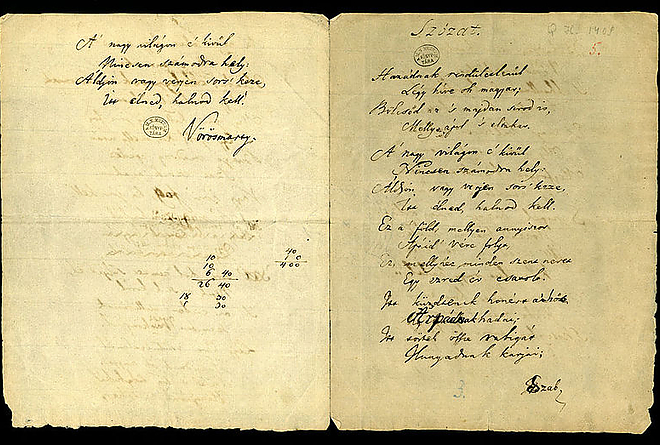 A' nagy világon é kivül
Nincsen számodra hely:
Áldjon vagy verjen sors' keze,
Itt élned, halnod kell.
Vörösmarty.
10
10
6 40
26 40
18 30
30
40
400
Szózat.
5.
Hazádnak rendületlenül
Légy híve oh magyar;
Bölcsőd az 's majdan sirod is,
Melly ápol 's eltakar.
A' nagy világon é kivül
Nincsen számodra hely:
Áldjon vagy verjen sors' keze,
Itt élned, halnod kell.
Ez a' föld, mellyen annyiszor
Apáid' vére folyt,
Ez, mellyhez minden szent nevet
Egy ezred év csatolt.
Itt küzdtenek honért a' hős
Árpádnak hadai;
Itt törtek össze rabigát
Hunyadnak karjai;
Szab
3.